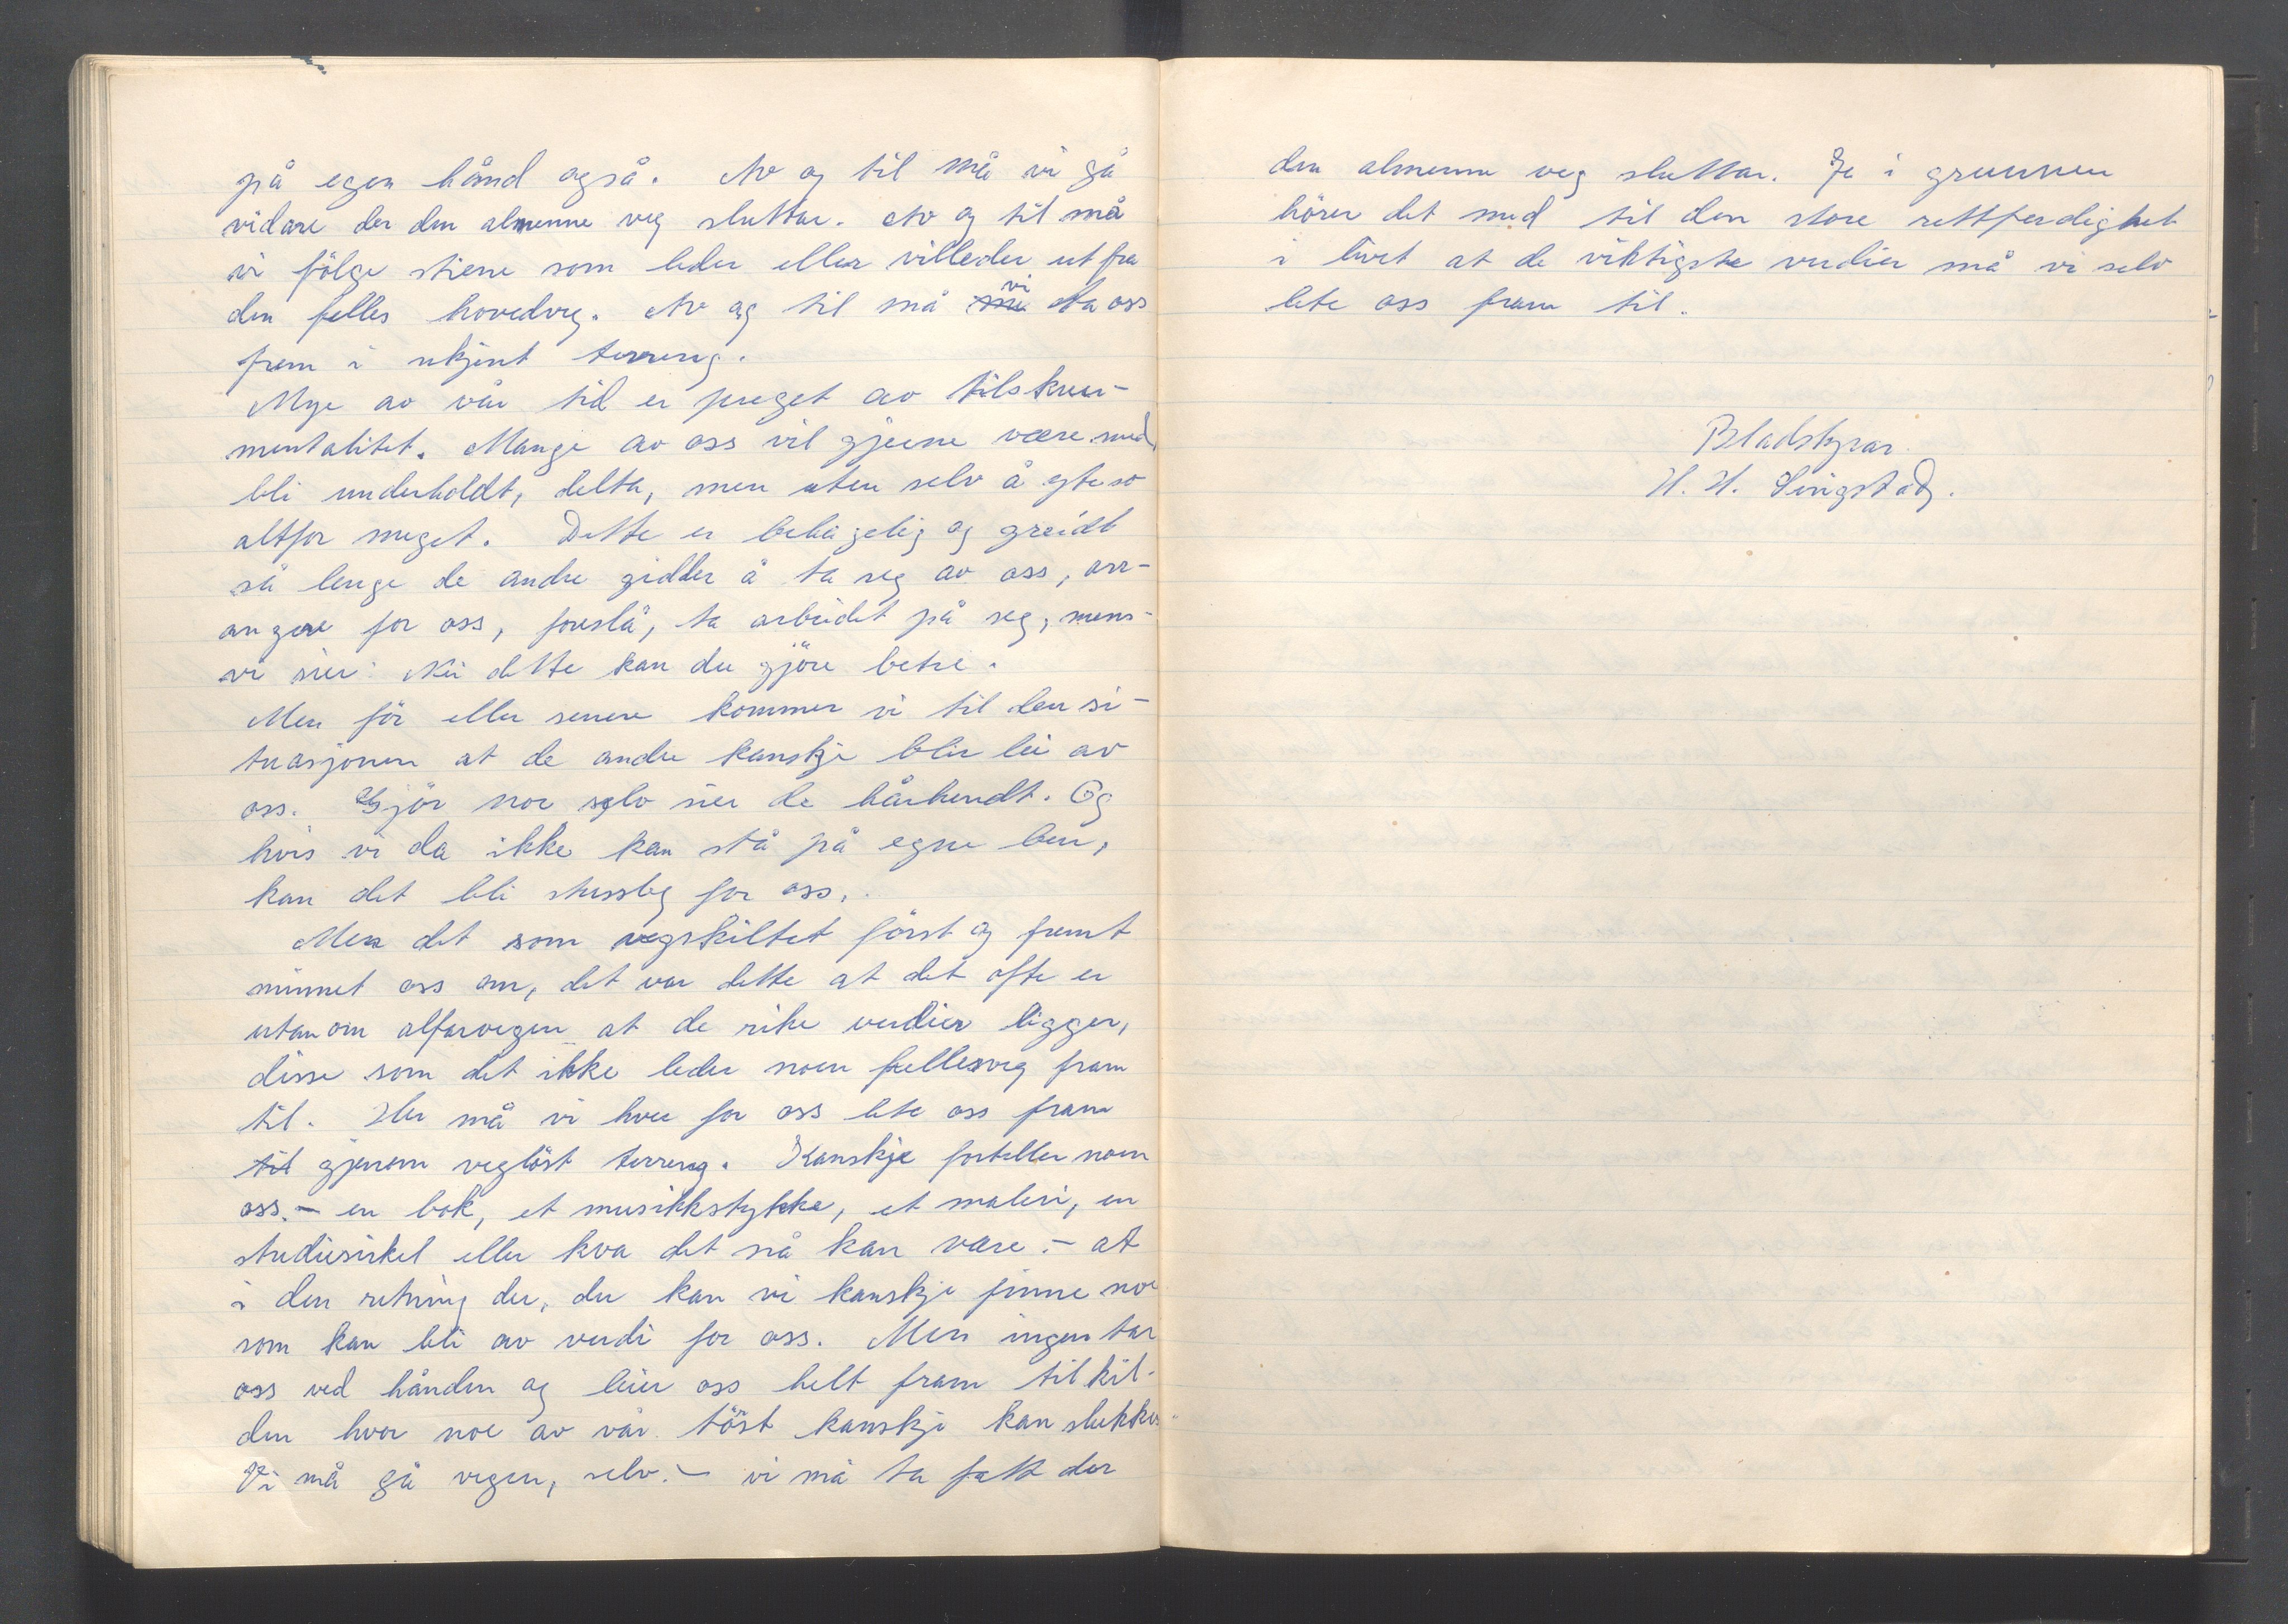 på egen hånd også. Av og til må vi gå
vidare der den almenne veg sluttar. Av og til må
vi fölge stiene som leder eller villeder ut fra
den felles hovedveg. Av og til må vi ta oss
frem i ukjent terreng.
Mye av vår tid er preget av tilskuer-
mentalitet. Mange av oss vil gjerne være med,
bli underholdt, delta, men uten selv å yte so
altfor meget. Dette er behagelig og greidt
så lenge de andre gidder å ta seg av oss, arr-
angere for oss, foreslå, ta arbeidet på seg, mens-
vi sier: Nei dette kan du gjöre betre.
Men för eller senere kommer vi til den si-
tuasjonen at de andre kanskje blir lei av
oss. Gjör noe selv sier de hårhendt. Og
hvis vi da ikke kan stå på egne ben,
kan det bli stusslig for oss.
Men det som vegskiltet först og fremst
minnet oss om, det var dette at det ofte er
utanom alfarvegen at de rike verdier ligger,
disse som det ikke leder noen fellesveg fram
til. Her må vi hver for oss lete oss fram
til gjenom veglöst terreng. Kanskje forteller noen
oss - en bok, et musikkstykke, et maleri, en
studiesirkel eller hva det nå kan vare - at
i den retning der, der kan vi kanskje finne noe
som kan bli av verdi for oss. Men ingen tar
oss ved hånden og leier oss helt fram til kil-
den hvor noe av vår töst kanskje kan slukkes.
Vi må gå vegen, selv. - vi må ta fatt der
den almenne veg sluttar. Ja i grunnen
hörer det med til den store rettferdighet
i livet at de viktigste verdier må vi selv
lete oss fram til.
Bladstyrar.
H. H. Singstad.